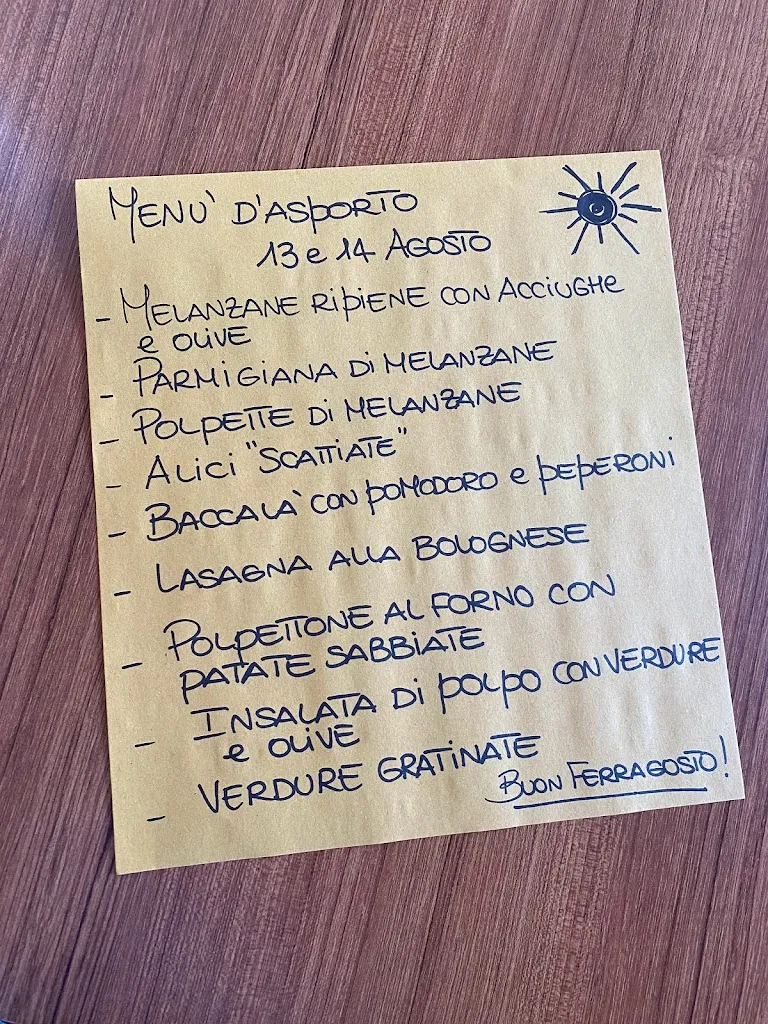 MENU' D'ASPORTO
13 e 14 AGOSTO
- MELANZANE RIPIENE CON ACCIUGHE
e OLIVE
- PARMIGIANA DI MELANZANE
- POLPETTE DI MELANZANE
- ALICI "SCATTIATE"
- BACCALA' CON POMODORO e PEPERONI
- LASAGNA ALLA BOLOGNESE
- POLPETTONE AL FORNO CON
PATATE SABBIATE
- INSALATA DI POLPO CON VERDURE
e OLIVE
- VERDURE GRATINATE
BUON FERRAGOSTO!